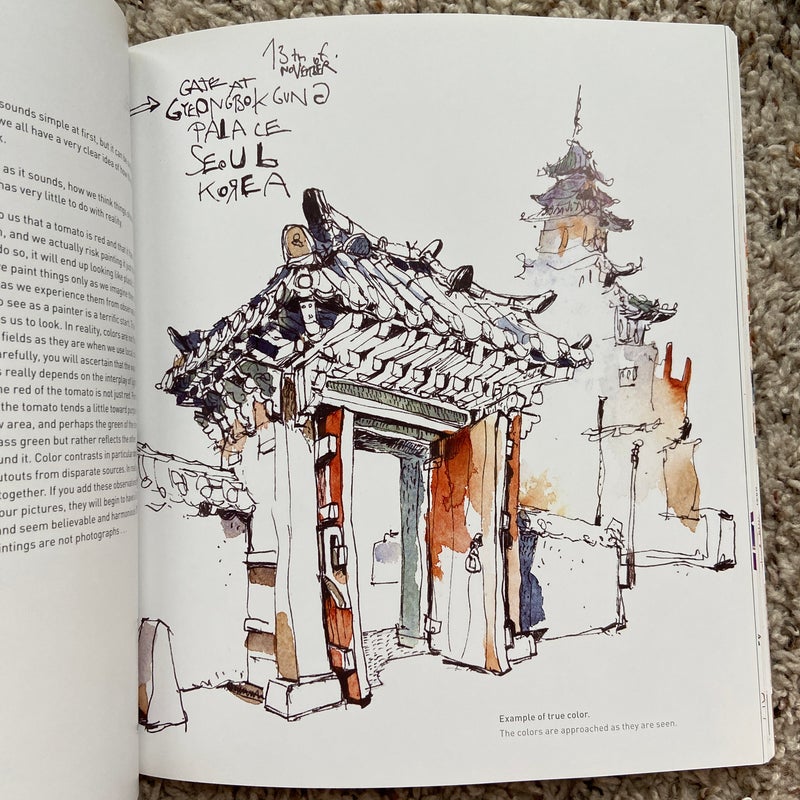 sounds simple at first, but it can be
we all have a very clear idea of how
as it sounds, how we think things
has very little to do with reality.
us that a tomato is red and that
and we actually risk painting it
do so, it will end up looking like
paint things only as we imagine
as we experience them from
see as a painter is a terrific start.
us to look. In reality, colors are
fields as they are when we use local
you will ascertain that the
really depends on the interplay of
red of the tomato is not just red.
the tomato tends a little toward
area, and perhaps the green of the
green but rather reflects the
it. Color contrasts in particular
from disparate sources. In
together. If you add these
pictures, they will begin to
and seem believable and
are not photographs ...
13th of
NOVEMBER
GATE AT
GYEONGBOKGUNG
PALACE
SEOUL
KOREA
Example of true color.
The colors are approached as they are seen.